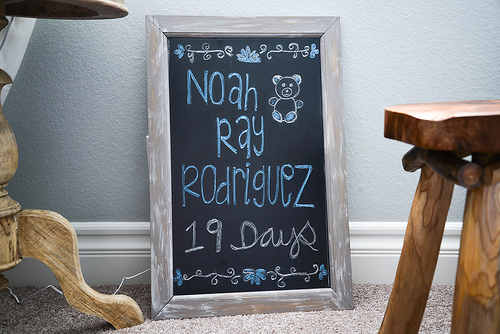 Noah
Ray
Rodriguez
19 Days